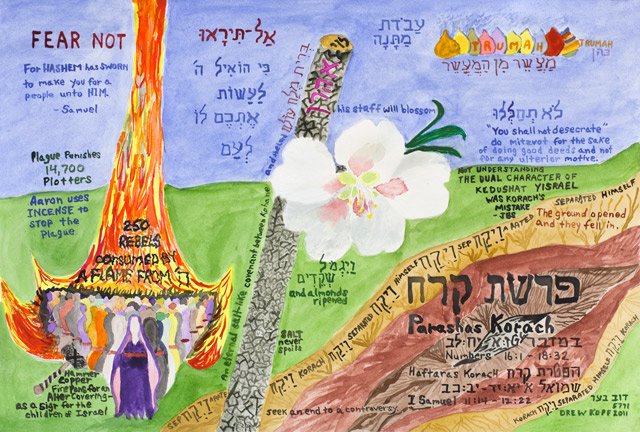 FEAR NOT
For HASHEM has SWORN
to make you for a
people unto HIM.
-Samuel
Plague Punishes
14,700
Plotters
Aaron uses
INCENSE to
STOP the
Plague
250
REBELS
CONSUMED BY
A FLAME FROM
Hammer
Copper
Fire Pans for an
Alter Covering-
as a sign for the
children of Israel
אל-תיראו
כי הואיל ה
לעשות
אתכם לו
לעם
עבדת
מתנה
ברית מלח עולם
אהרן
his staff will blossom
TRUMAH
TRUMAH
כהן
מעשר מן המעשר
לא תחללו
"You shall not desecrate"
do mitzvot for the sake
of doing good deeds and not
for any ulterior motive.
NOT UNDERSTANDING
THE DUAL CHARACTER OF
KEDUSHAT YISRAEL
WAS KORACH'S
MISTAKE
-JBS
The ground opened
and they fell in.
ויגמל
שקדים
and almonds
ripened
An eternal salt-like covenant between Kohane and
SALT
never
spoils
seek an end to a controversy
SEPARATED HIMSELF
KORACH ויקח SEPARATED HIMSELF
פרשת קרח
Parashas Korach
במדבר טז:א-יח:לב
Numbers 16:1 - 18:32
Haftaras Korach הפטרת קרח
שמואל א יא:יד-יב:כב
I Samuel 11:14 - 12:22
דוב בער
5771
DREW KOPF 2011